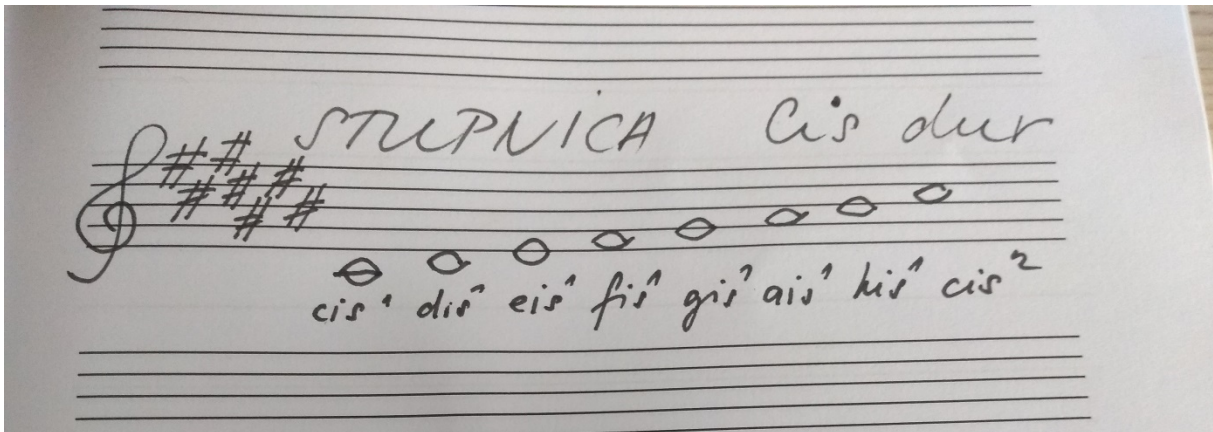 STUPNICA Cis dur
cis¹ dis¹ eis¹ fis¹ gis¹ ais¹ his¹ cis²